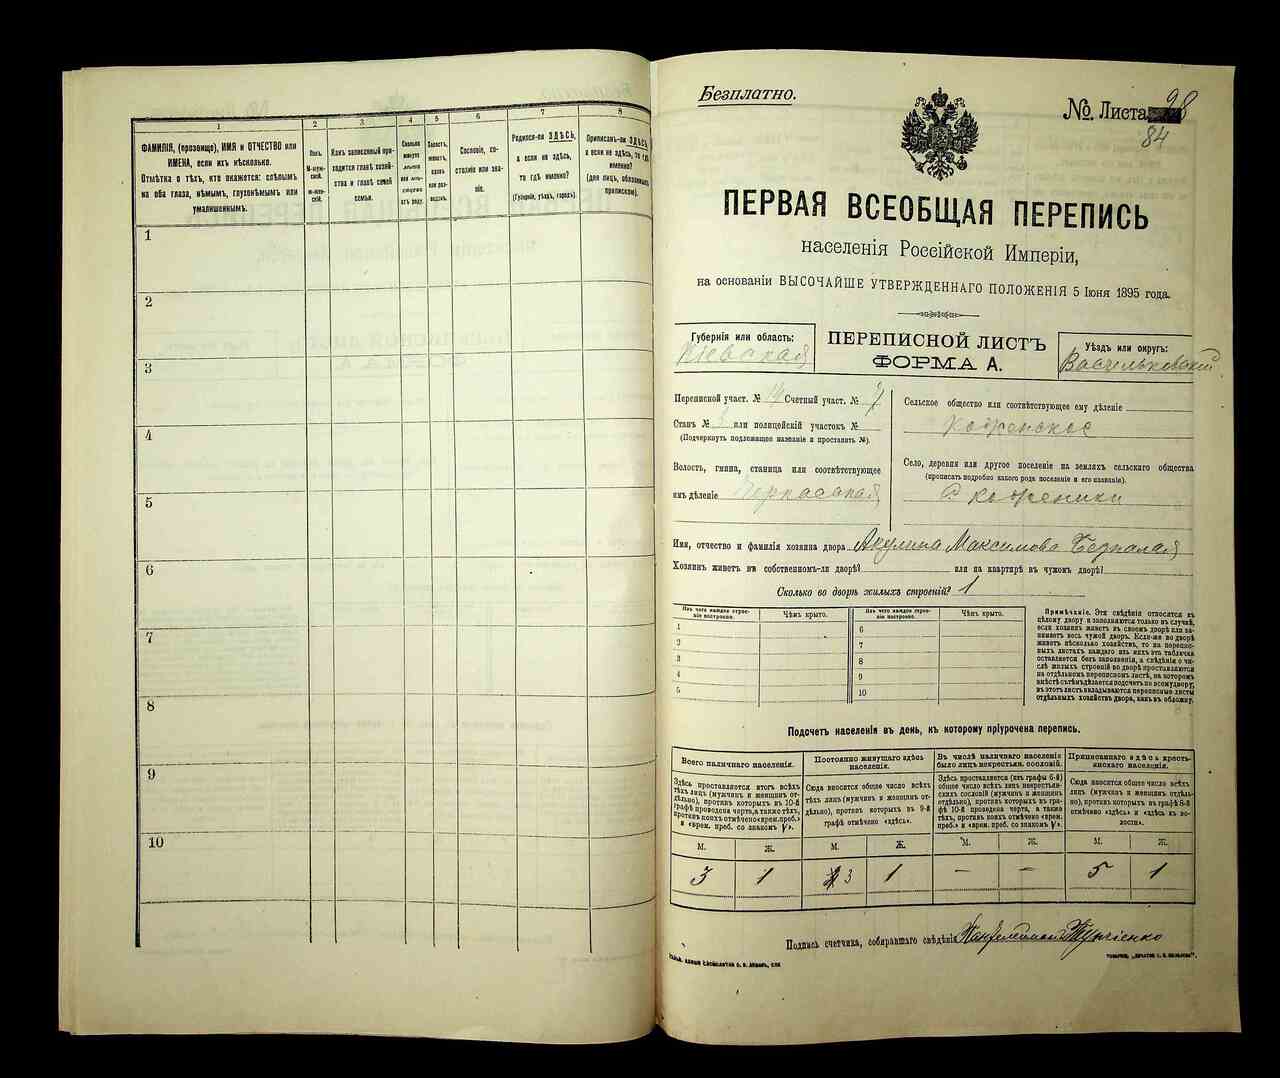 1
2
3
4
5
6
7
8
ФАМИЛІЯ, (прозвище), ИМЯ и ОТЧЕСТВО или
ИМЕНА, если ихъ нѣсколько.
Отмѣтка о тѣхъ, кто окажется: слѣпымъ
на оба глаза, нѣмымъ, глухонѣмымъ или
умалишеннымъ.
Полъ.
М-муж-
ской.
ж-жен-
скій.
Какъ записанный при-
ходится главѣ хозяй-
ства и главѣ своей
семьи.
Сколько
минуло
лѣтъ
или мѣ-
сяцевъ
отъ роду.
Холостъ,
женатъ,
вдовъ
или раз-
веденъ.
Сословіе, со-
стояніе или зва-
ніе.
Родился-ли ЗДѢСЬ,
а если не здѣсь,
то гдѣ именно?
(Губернія, уѣздъ, городъ).
Приписанъ-ли ЗДѢСЬ,
а если не здѣсь, то гдѣ
именно?
(для лицъ, обязанныхъ
припискою).
1
2
3
4
5
6
7
8
9
10
Безплатно.
№ Листа 98
84
ПЕРВАЯ ВСЕОБЩАЯ ПЕРЕПИСЬ
населенія Россійской Имперіи,
на основаніи ВЫСОЧАЙШЕ УТВЕРЖДЕННАГО ПОЛОЖЕНІЯ 5 Іюня 1895 года.
Губернія или область:
Кіевская
ПЕРЕПИСНОЙ ЛИСТЪ
ФОРМА А.
Уѣздъ или округъ:
Васильковскій
Переписной участ. № 14 Счетный участ. № 7
Станъ № 3 или полицейскій участокъ №
(Подчеркнуть подлежащее названіе и проставить №).
Волость, гмина, станица или соотвѣтствующее
имъ дѣленіе Черкасская
Сельское общество или соотвѣтствующее ему дѣленіе
Село, деревня или другое поселеніе на земляхъ сельскаго общества
(прописать подробно какого рода поселеніе и его названіе).
С.
Имя, отчество и фамилія хозяина двора Акулина Максимова
Хозяинъ живетъ въ собственномъ-ли дворѣ? или на квартирѣ въ чужомъ дворѣ?
Сколько во дворѣ жилыхъ строеній? 1
Изъ чего каждое строе-
ніе построено.
Чѣмъ крыто.
Изъ чего каждое строе-
ніе построено.
Чѣмъ крыто.
1
2
3
4
5
6
7
8
9
10
Примѣчаніе. Эти свѣдѣнія относятся къ
цѣлому двору и заполняются только въ случаѣ,
если хозяинъ живетъ въ своемъ дворѣ или за-
нимаетъ весь чужой дворъ. Если-же во дворѣ
живетъ нѣсколько хозяйствъ, то на перепис-
ныхъ листахъ каждаго изъ нихъ эта табличка
оставляется безъ заполненія, а свѣдѣнія о чи-
слѣ жилыхъ строеній во дворѣ проставляются
на отдѣльномъ переписномъ листѣ, на которомъ
вмѣстѣ съ тѣмъ дѣлается подсчетъ по всему двору;
въ этотъ листъ вкладываются переписные листы
отдѣльныхъ хозяйствъ двора, какъ въ обложку.
Подсчетъ населенія въ день, къ которому пріурочена перепись.
Всего наличнаго населенія.
Постоянно живущаго здѣсь
населенія.
Въ числѣ наличнаго населенія
было лицъ некрестьян. сословій.
Приписаннаго здѣсь кресть-
янскаго населенія.
Здѣсь проставляется итогъ всѣхъ
тѣхъ лицъ (мужчинъ и женщинъ от-
дѣльно), противъ которыхъ въ 10-й
графѣ проведена черта, а также тѣхъ,
противъ коихъ отмѣчено «врем. преб.»
и «врем. преб. со знакомъ V».
Сюда вносится общее число всѣхъ
тѣхъ лицъ (мужчинъ и женщинъ от-
дѣльно), противъ которыхъ въ 9-й
графѣ отмѣчено «здѣсь».
Здѣсь проставляется (изъ графы 6-й)
общее число всѣхъ некрестьян-
скихъ сословій (мужчинъ и женщинъ
отдѣльно), противъ которыхъ въ гра-
фѣ 10-й проведена черта, а также
тѣхъ, противъ коихъ отмѣчено «врем.
преб.» и «врем. преб. со знакомъ V».
Сюда вносится общее число всѣхъ
лицъ (мужчинъ и женщинъ отдѣль-
но), противъ которыхъ въ графѣ 8-й
отмѣчено «здѣсь» и «здѣсь въ во-
лости».
М. Ж. М. Ж. М. Ж. М. Ж.
3 1 3 1 — — 5 1
Подпись счетчика, собиравшаго свѣдѣнія